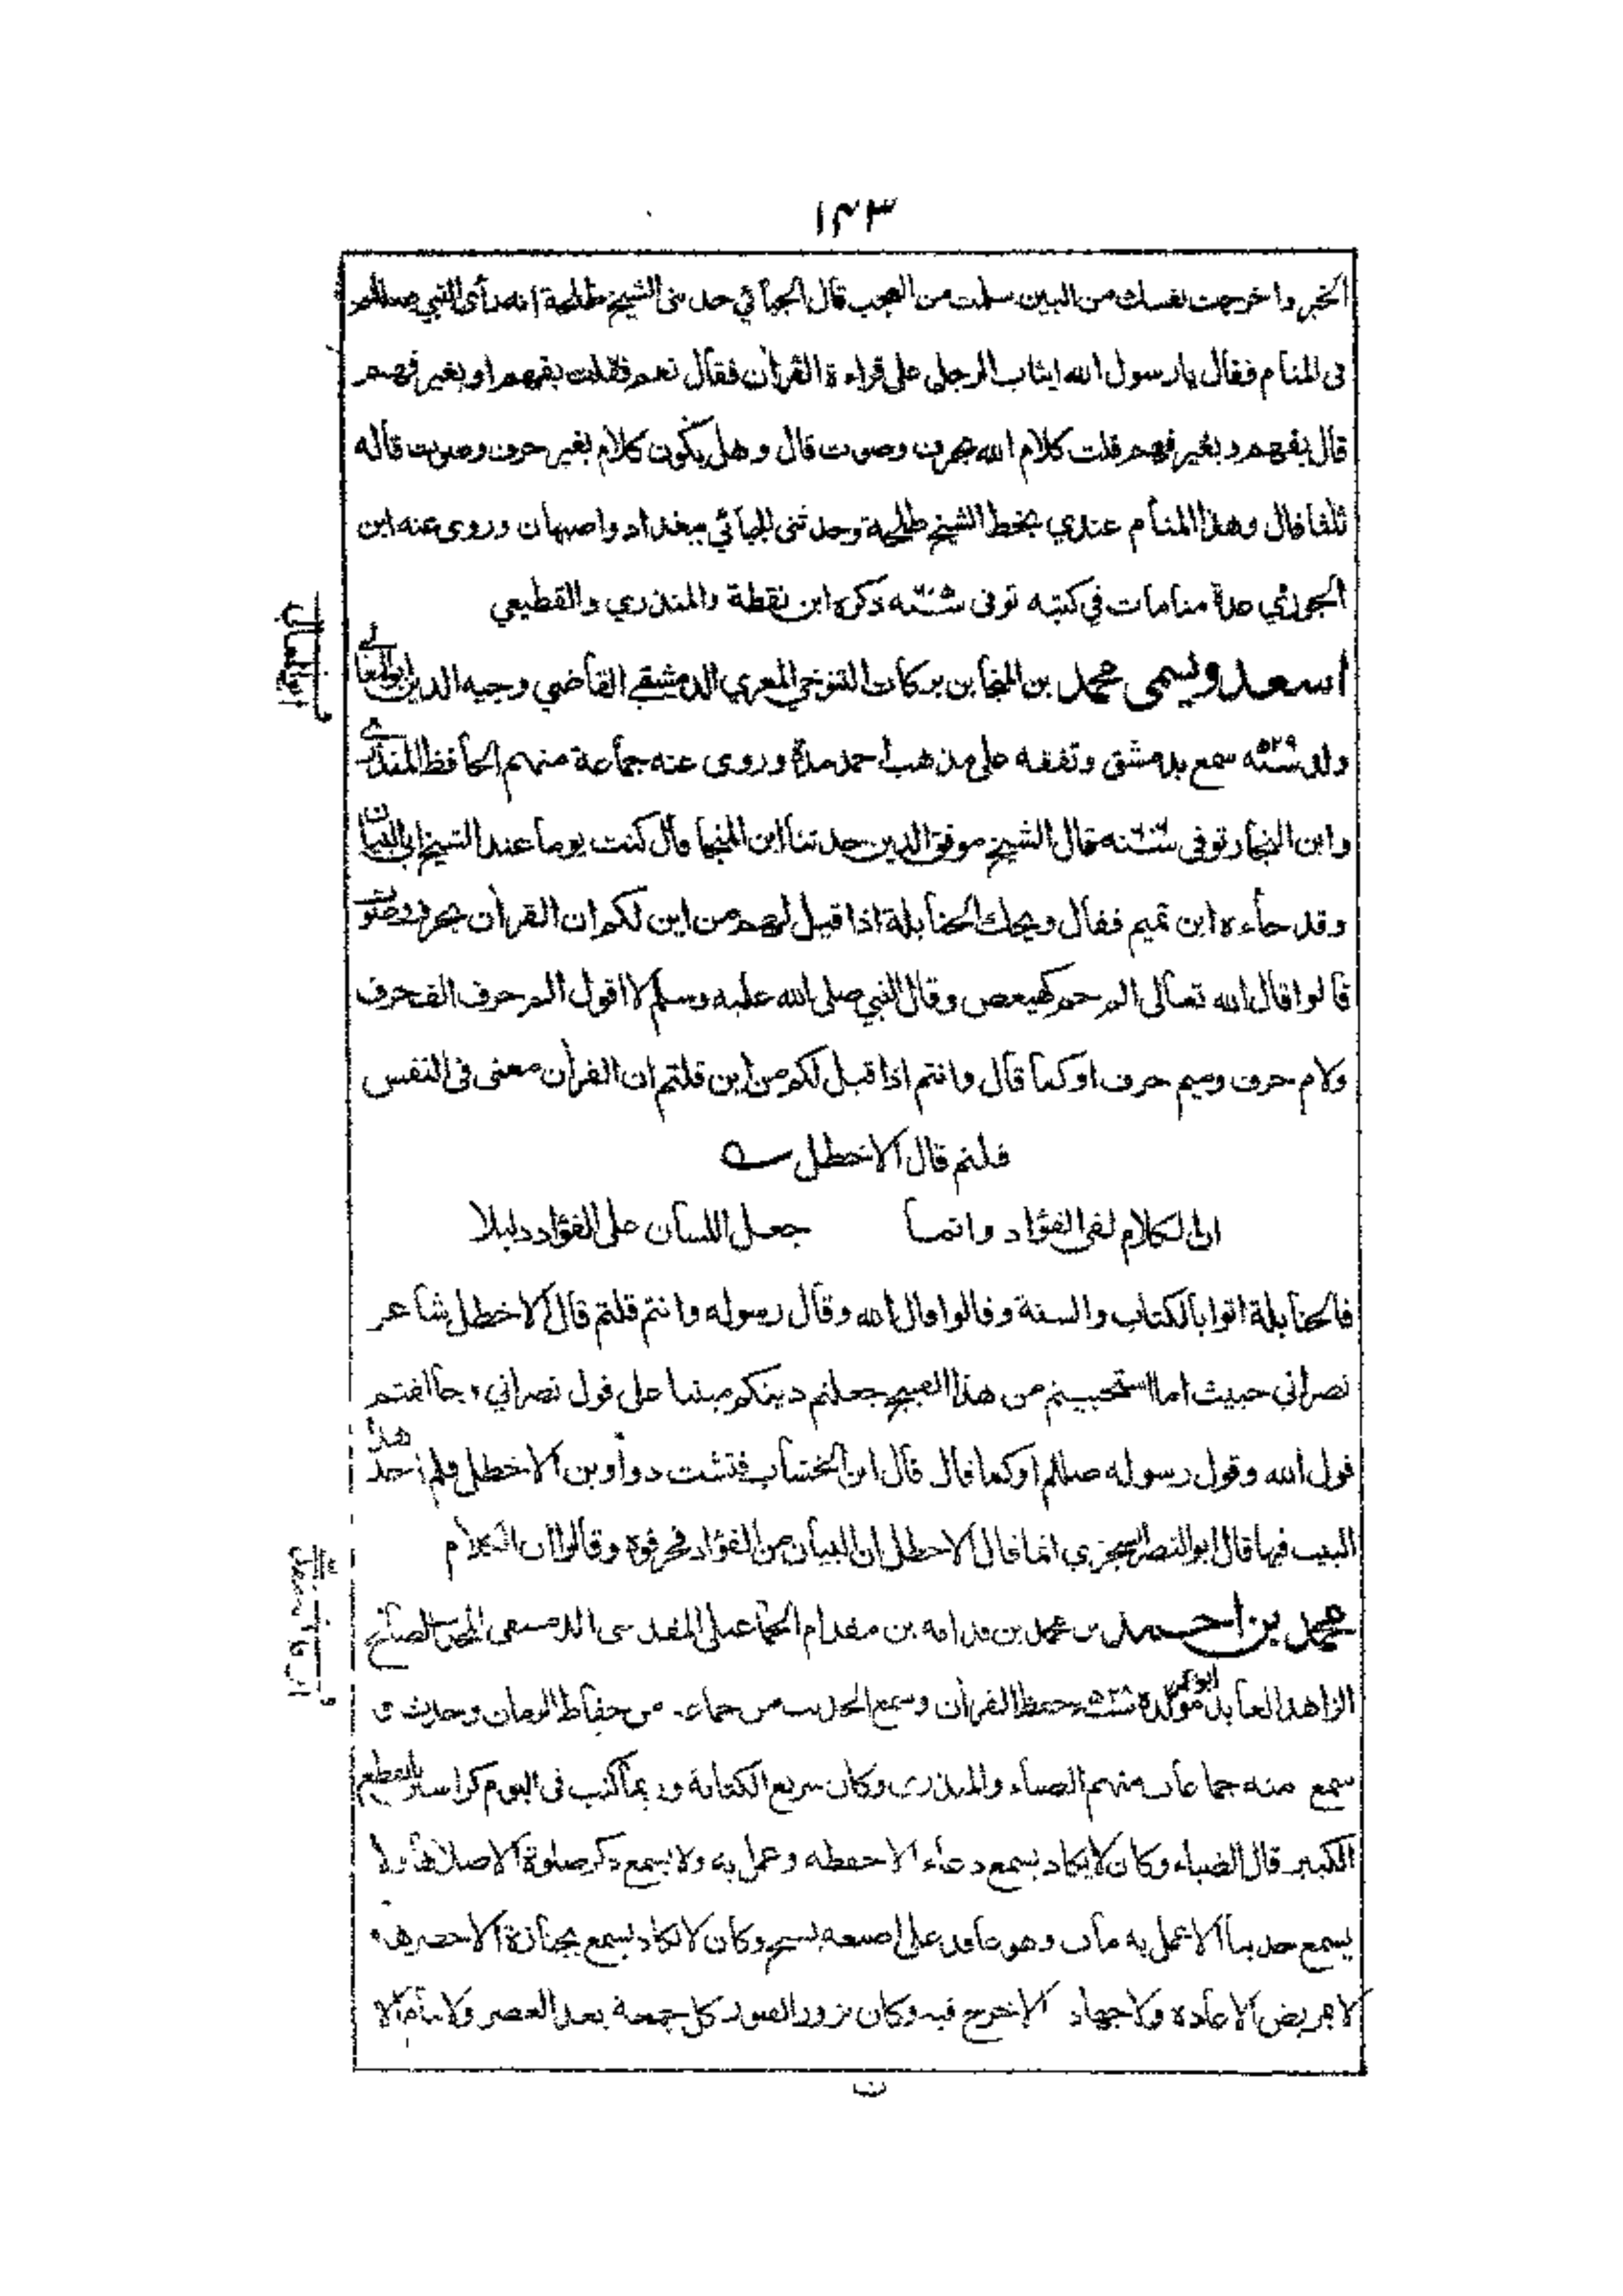 ١٤٣
الخبر واخرجت نفسك من البين سلمت من العجب قال الجبآئي حدثنى الشيخ طلحة انه رأى النبي صللم
فى المنام فقال يا رسول الله ايثاب الرجل على قراءة القرآن فقال نعم فقلت بفهم او بغير فهم
قال بفهم وبغير فهم قلت كلام الله بحرف وصوت قال وهل يكون كلام بغير حرف وصوت قاله
ثلثا قال وهذا المنام عندي بخط الشيخ طلحة وحدثنى الجبآئي ببغداد واصبهان وروى عنه ابن
الجوزي عدة منامات في كتبه توفى ذكره ابن نقطة والمنذري والقطيعي
اسعد ويسمى محمد بن المنجا بن بركات التنوخي المعري الدمشقي القاضي وجيه الدين ابو المعالي
ولد سمع بدمشق وتفقه على مذهب احمد مدة وروى عنه جماعة منهم الحافظ المنذري
وابن النجار توفى قال الشيخ موفق الدين حدثنا ابن المنجا قال كنت يوما عند الشيخ ابي البيان
وقد جاءه ابن تميم فقال ويحك الحنابلة اذا قيل لهم من اين لكم ان القرآن بحرف وصوت
قالوا قال الله تعالى الم حم كهيعص وقال النبي صلى الله عليه وسلم لا اقول الم حرف الف حرف
ولام حرف وميم حرف او كما قال وانتم اذا قيل لكم من اين قلتم ان القرآن معنى فى النفس
قلتم قال الاخطل
ان الكلام لفى الفؤاد وانما جعل اللسان على الفؤاد دليلا
فالحنابلة اتوا بالكتاب والسنة وقالوا قال الله وقال رسوله وانتم قلتم قال الاخطل شاعر
نصراني خبيث اما استحييتم من هذا القبيح جعلتم دينكم مبنيا على قول نصراني وخالفتم
قول الله وقول رسوله صللم او كما قال قال ابن الخشاب فتشت دواوين الاخطل فلم اجد هذا
البيت فيها قال ابو النصر السجزي انما قال الاخطل ان البيان من الفؤاد فحرفوه وقالوا ان الكلام
محمد بن احمد بن محمد بن قدامه بن مقدام الجماعيلي المقدسى الدمشقى الصالحي
الزاهد العابد ابو عمر مولده حفظ القرآن وسمع الحديث من جماعة من حفاظ الزمان وحدث و
سمع منه جماعات منهم الضياء والمنذرى وكان سريع الكتابة وربما كتب فى اليوم كراسين بالقطع
الكبير قال الضياء وكان لا يكاد يسمع دعاء الا حفظه وعمل به ولا يسمع ذكر صلوة الا صلاها ولا
يسمع حديثا الا عمل به مات وهو عاقد على اصبعه يسبح وكان لا يكاد يسمع بجنازة الا حضرها و
لا مريض الا عاده ولا جهاد الا خرج فيه وكان يزور القبور كل جمعة بعد العصر ولا ينام الا